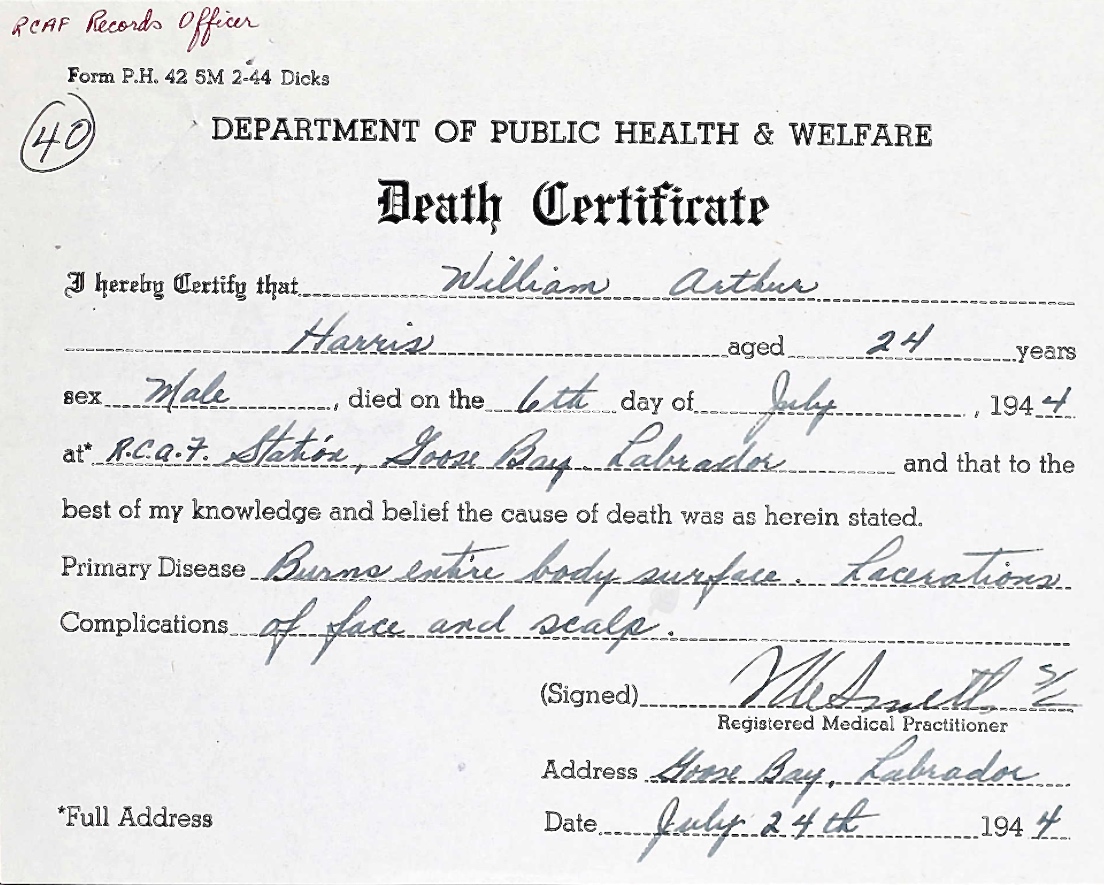 RCAF Records Officer
Form P.H. 42 5M 2-44 Dicks
40
DEPARTMENT OF PUBLIC HEALTH & WELFARE
Death Certificate
I hereby Certify that William Arthur
Harris aged 24 years
sex Male, died on the 6th day of July, 1944
at* R.C.A.F. Station, Goose Bay Labrador and that to the
best of my knowledge and belief the cause of death was as herein stated.
Primary Disease Burns entire body surface. Lacerations
Complications of face and scalp.
(Signed) S/L
Registered Medical Practitioner
Address Goose Bay, Labrador
*Full Address Date July 24th 1944